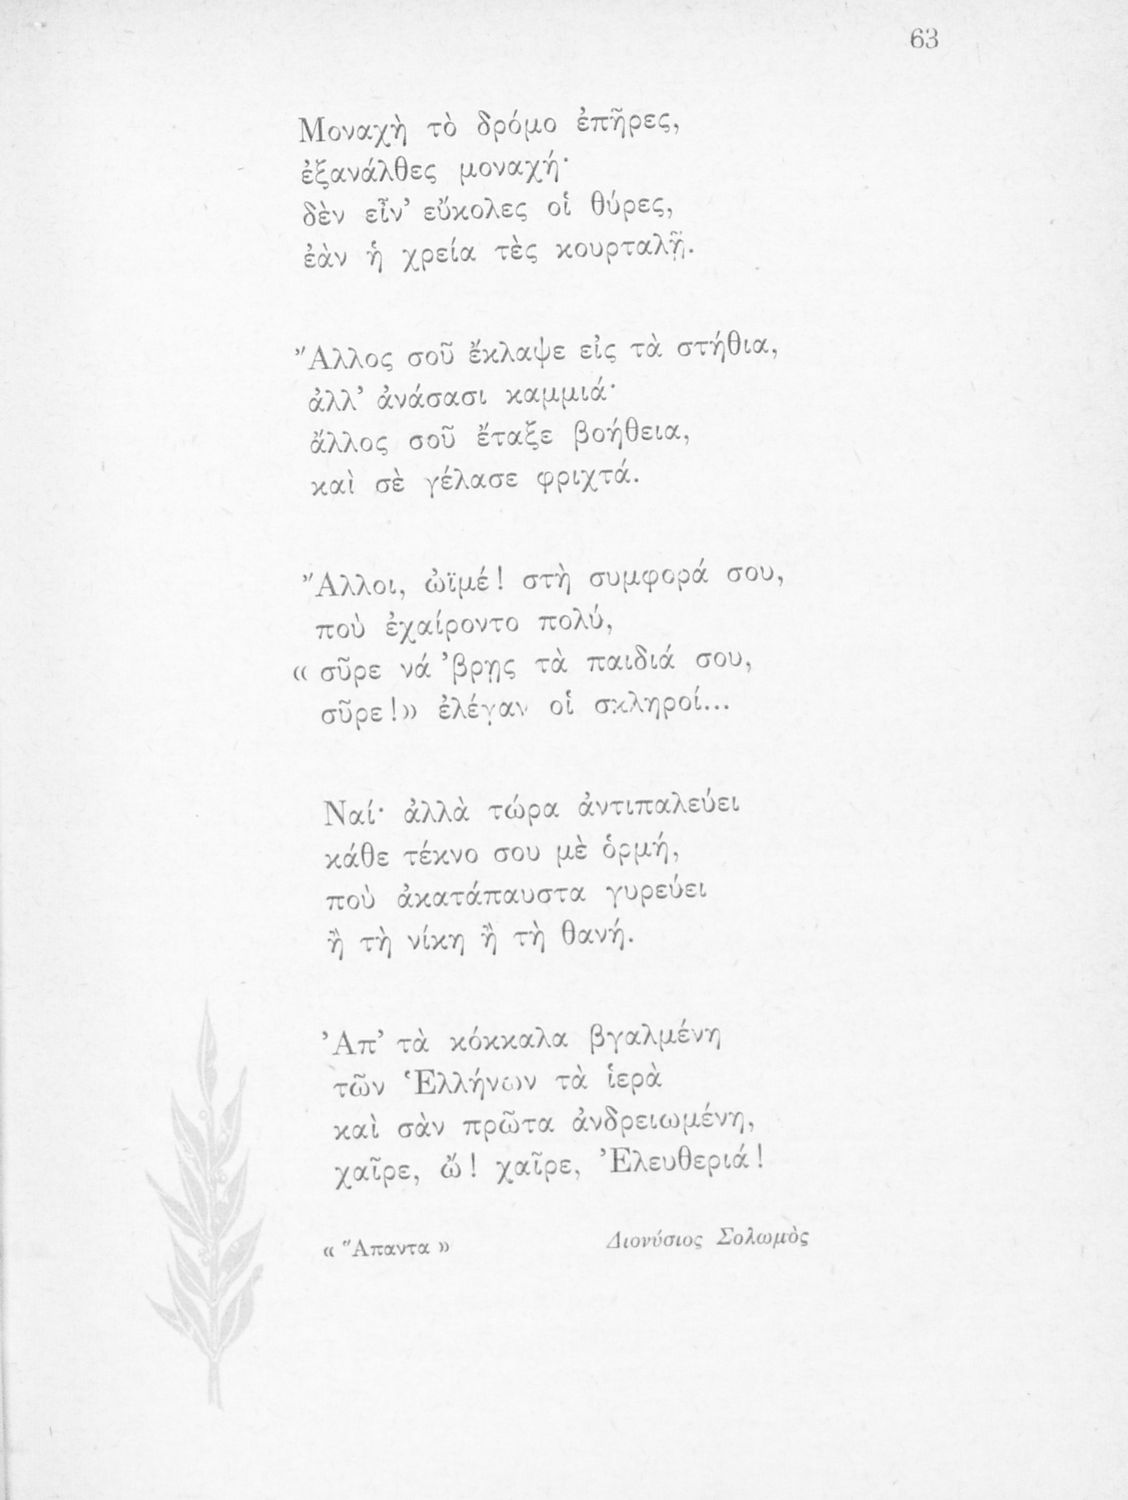 63
Μοναχὴ τὸ δρόμο ἐπῆρες,
ἐξανάλθες μοναχή·
δὲν εἶν’ εὔκολες οἱ θύρες,
ἐὰν ἡ χρεία τὲς κουρταλῇ.
Ἄλλος σοῦ ἔκλαψε εἰς τὰ στήθια,
ἀλλ’ ἀνάσασι καμμιά·
ἄλλος σοῦ ἔταξε βοήθεια,
καὶ σὲ γέλασε φριχτά.
Ἄλλοι, ὠϊμέ! στὴ συμφορά σου,
ποὺ ἐχαίροντο πολύ,
« σῦρε νά ’βρῃς τὰ παιδιά σου,
σῦρε!» ἐλέγαν οἱ σκληροί...
Ναί· ἀλλὰ τώρα ἀντιπαλεύει
κάθε τέκνο σου μὲ ὁρμή,
ποὺ ἀκατάπαυστα γυρεύει
ἢ τὴ νίκη ἢ τὴ θανή.
Ἀπ’ τὰ κόκκαλα βγαλμένη
τῶν Ἑλλήνων τὰ ἱερὰ
καὶ σὰν πρῶτα ἀνδρειωμένη,
χαῖρε, ὤ! χαῖρε, Ἐλευθεριά!
« Ἅπαντα » Διονύσιος Σολωμὸς